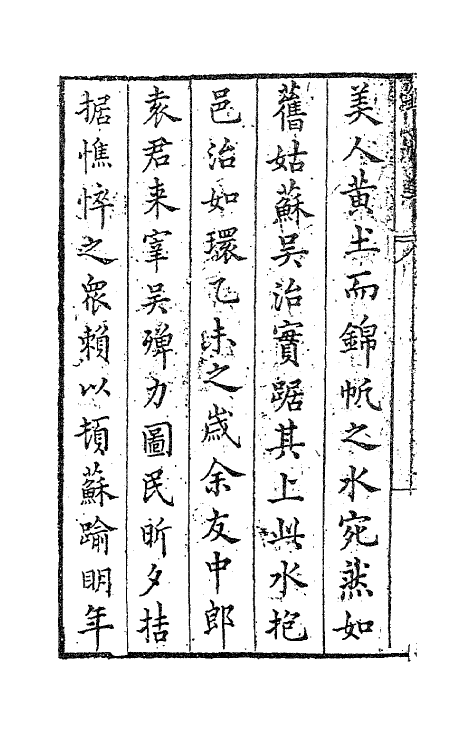 美人黄土而錦帆之水宛然如
舊姑蘇吴治實踞其上此水抱
邑治如環乙未之歳余友中郎
袁君来宰吴殫力圖民昕夕拮
据憔悴之衆賴以頓蘇踰明年